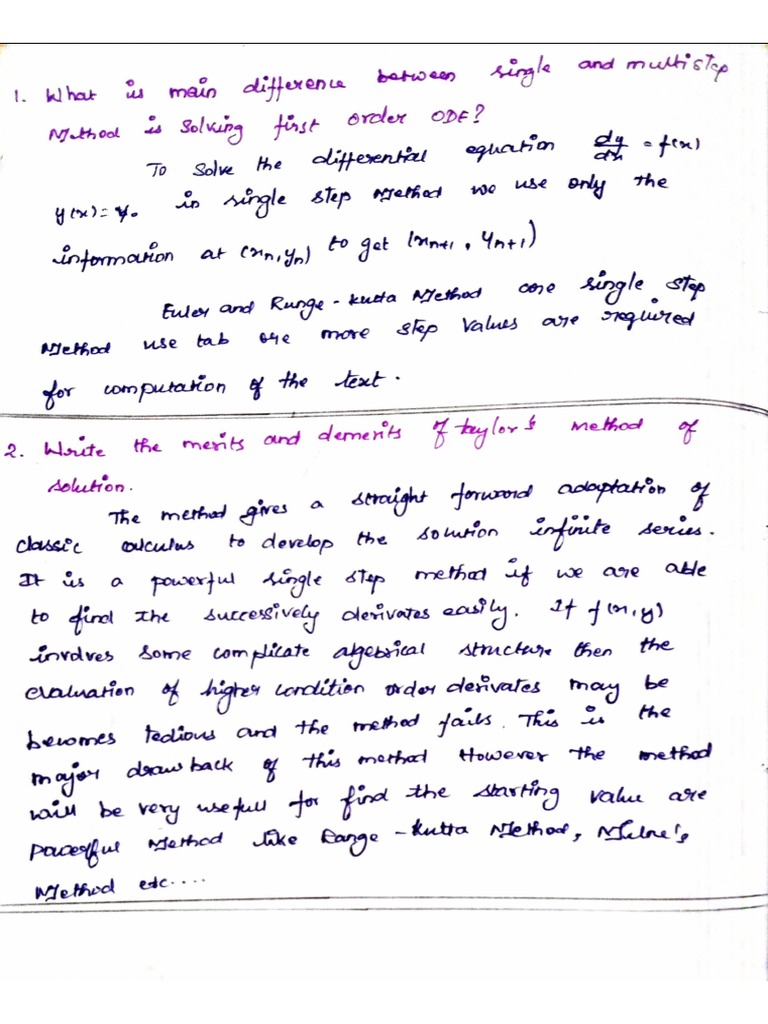 1. What is main difference between single and multistep
Method is solving first order ODE?
To solve the differential equation dy/dx = f(x)
y(x) = y₀ in single step Method we use only the
information at (xn, yn) to get (xn+1, yn+1)
Euler and Runge-kutta Method are single step
Method use tab are more step values are required
for computation of the text.
2. Write the merits and demerits of taylor's method of
solution.
The method gives a straight forward adaptation of
classic calculus to develop the solution infinite series.
It is a powerful single step method if we are able
to find the successively derivates easily. If f(x, y)
involves some complicate algebrical structure then the
evaluation of higher condition order derivates may be
becomes tedious and the method fails. This is the
major drawback of this method However the method
will be very usefull for find the starting value are
Method like Range-kutta Method, Milne's
Method etc....